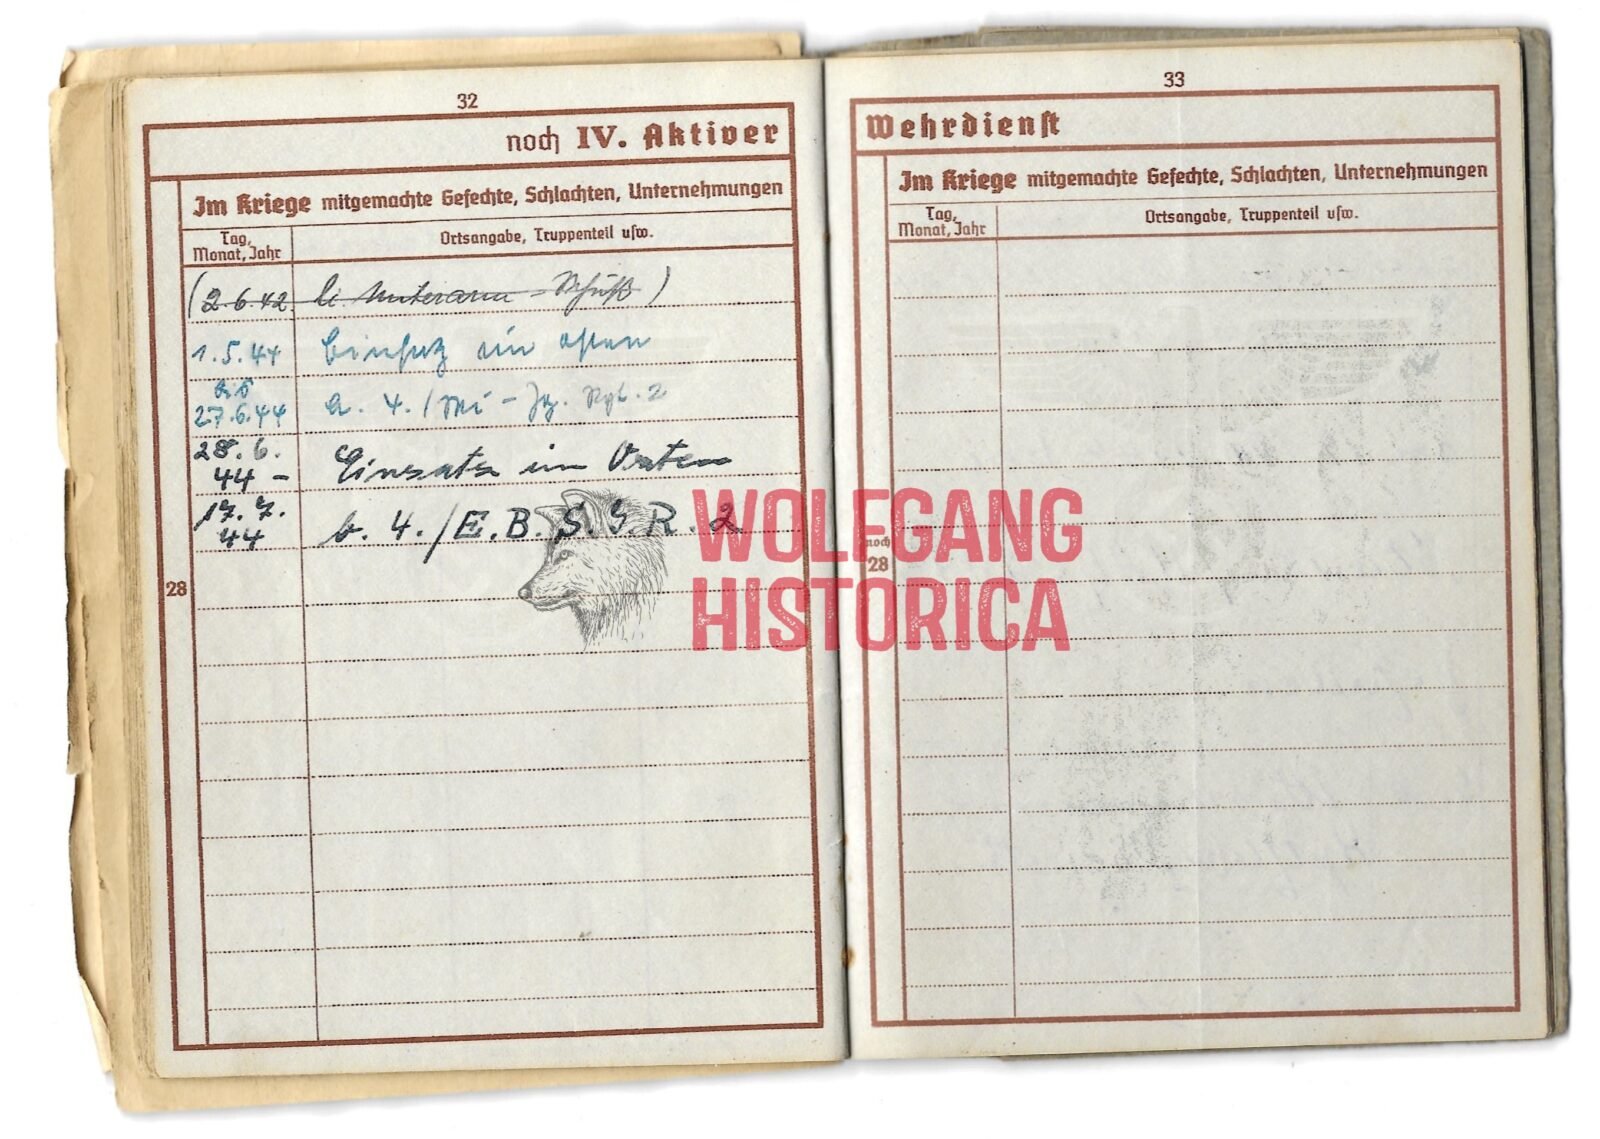 32
noch IV. Aktiver
Im Kriege mitgemachte Gefechte, Schlachten, Unternehmungen
Tag, Monat, Jahr
Ortsangabe, Truppenteil usw.
(2.6.42. li. Unterarm - Schuß)
1.5.44 Einsatz im Osten
bis
27.6.44 a. 4./ - Jg. Rgt. 2
28.6. Einsatz im Osten
44 -
17.7. b. 4./E.B.S.J.R. 2
44
28
33
Wehrdienst
Im Kriege mitgemachte Gefechte, Schlachten, Unternehmungen
Tag, Monat, Jahr
Ortsangabe, Truppenteil usw.
noch
28
WOLFGANG
HISTORICA